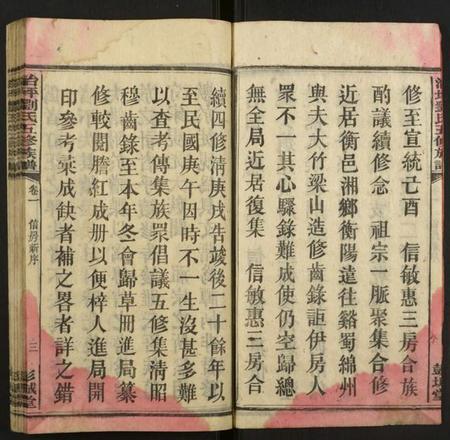 修至宣統己酉　信敏惠三房合族
酌議續修念　祖宗一脈聚集合修
近居衡邑湘鄉衡陽遠往谿蜀綿州
與夫大竹梁山造修齒錄詎伊房人
眾不一其心驟錄難成使仍空歸總
無全局近居復集　信敏惠三房合
續四修清庚戌告竣後二十餘年以
至民國庚午因時不一生沒甚多難
以查考傳集族眾倡議五修集清昭
穆齒錄至本年冬會歸草冊進局纂
修較閱謄紅成册以便梓人進局開
印參考棄成缺者補之畧者詳之錯
劉氏五修族譜
卷一
信房新序
三
彭城堂